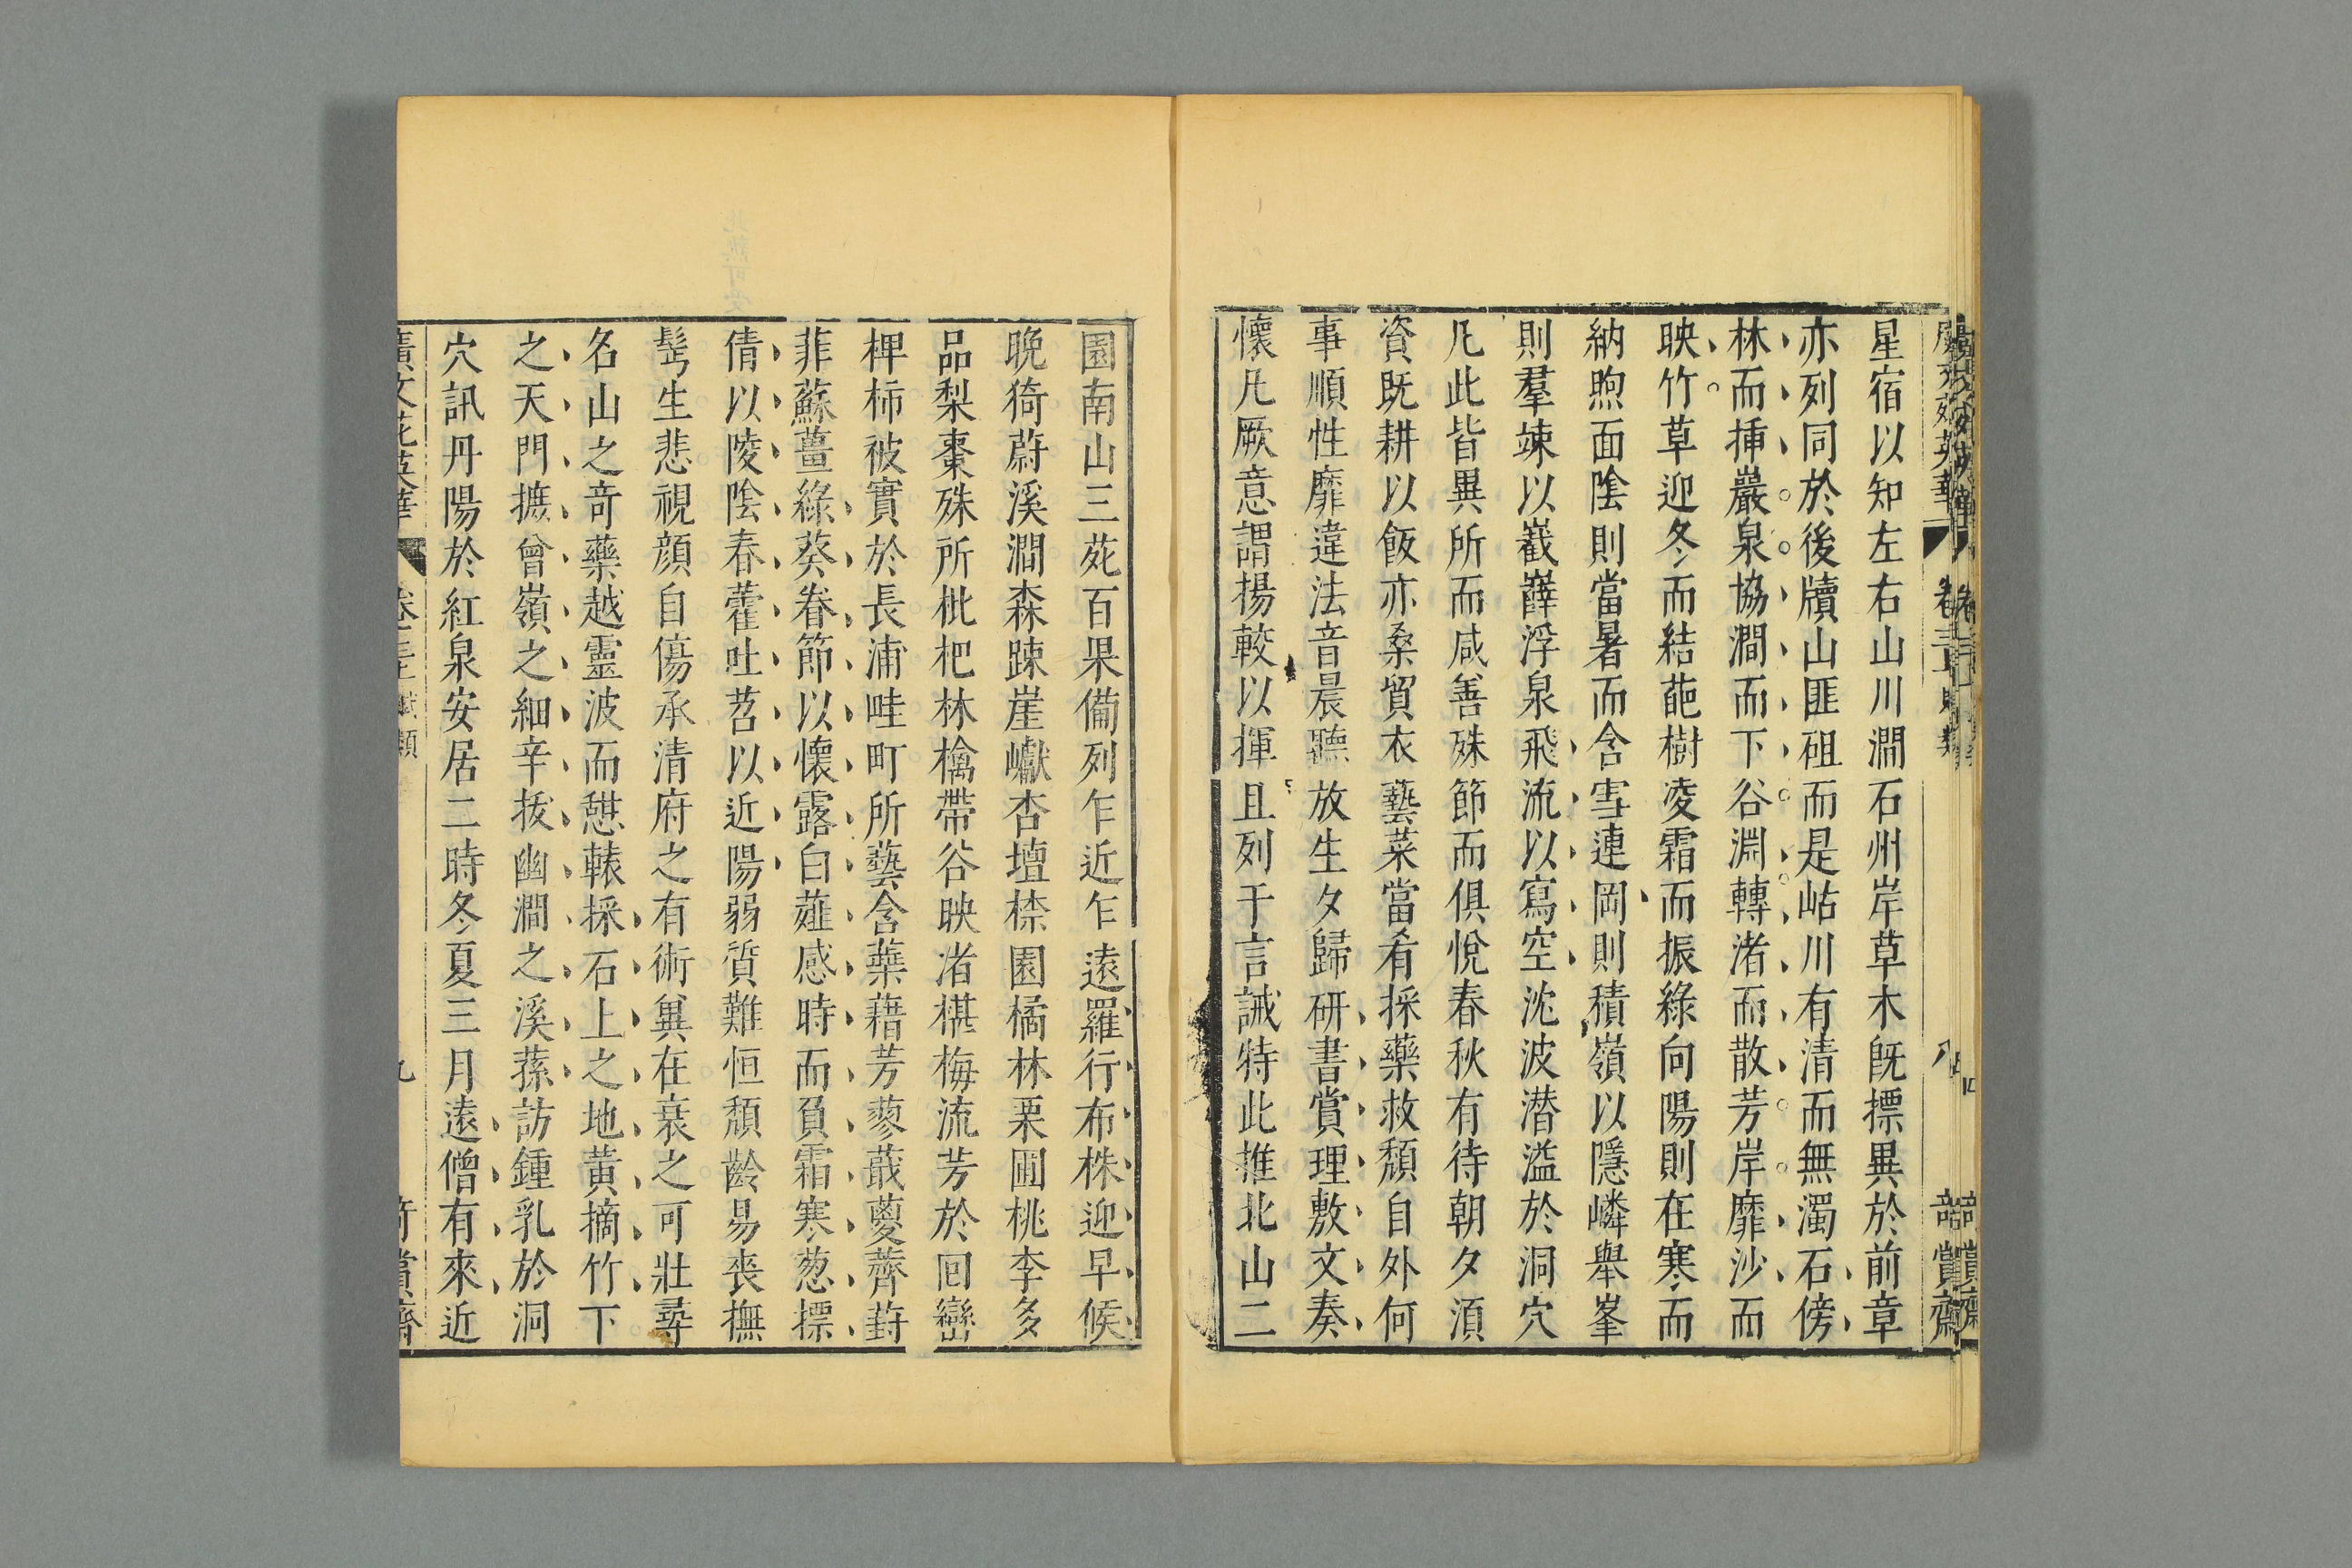 星宿以知左右山川澗石州岸草木旣摽異於前章
亦列同於後牘山匪砠而是岵川有清而無濁石傍
林而揷巖泉協澗而下谷淵轉渚而散芳岸靡沙而
映竹草迎冬而結葩樹凌霜而振綠向陽則在寒而
納煦面陰則當暑而含雪連岡則積嶺以隱嶙舉峯
則羣竦以嶻嶭浮泉飛流以寫空沈波潛溢於洞穴
凡此皆異所而咸善殊節而俱悅春秋有待朝夕須
資既耕以飯亦桑貿衣藝菜當肴採藥救頹自外何
事順性靡違法音晨聽放生夕歸研書賞理敷文奏
懷凡厥意謂揚較以揮且列于言誡特此推北山二
園南山三苑百果備列乍近乍遠羅行布株迎早候
晚猗蔚溪澗森疎崖巘杏壇㮈園橘林栗圃桃李多
品梨棗殊所枇杷林檎帶谷映渚椹梅流芳於回巒
椑柿被實於長浦畦町所藝含蘂藉芳蓼蕺葼薺葑
菲蘇薑綠葵眷節以懷露白薤感時而負霜寒葱摽
倩以陵陰春藿吐苕以近陽弱質難恒頹齡易喪撫
鬂生悲視顔自傷承清府之有術兾在衰之可壯尋
名山之奇藥越靈波而憇轅採石上之地黃摘竹下
之天門摭曾嶺之細辛拔幽澗之溪蓀訪鍾乳於洞
穴訊丹陽於紅泉安居二時冬夏三月遠僧有來近
廣文苑英華 賦類 九 奇賞齋